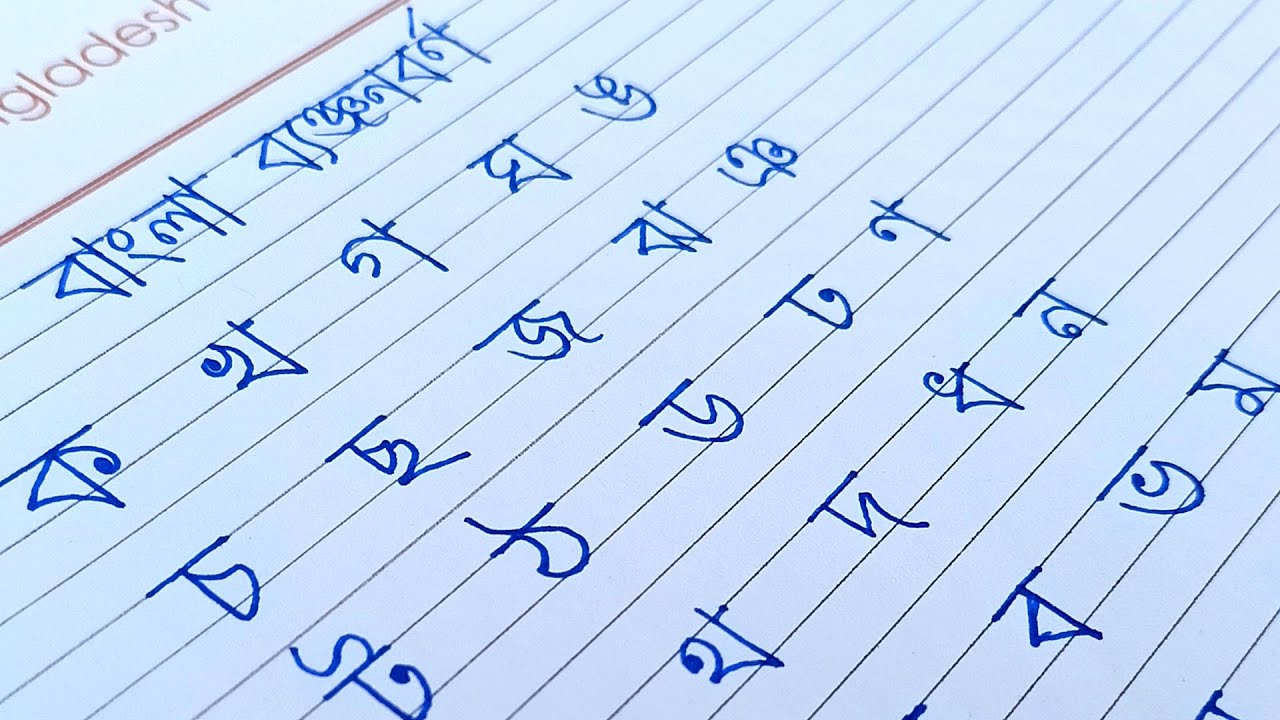 ngladesh
বাংলা ব্যঞ্জনবর্ণ
ক খ গ ঘ ঙ
চ ছ জ ঝ ঞ
ট ঠ ড ঢ ণ
থ দ ধ ন
ব ভ ম